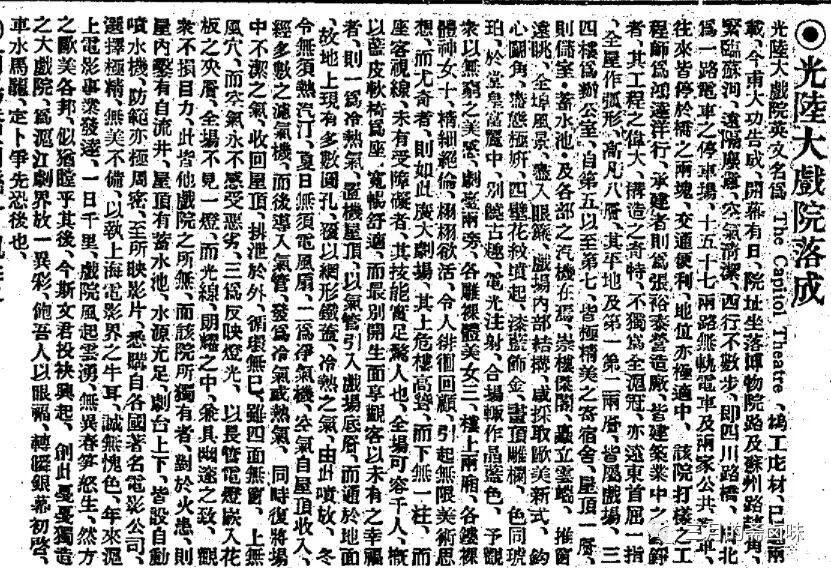 ◉光陸大戲院落成
光陸大戲院英文名爲 The Capitol Theatre、鳩工庀材、已兩
載、今甫大功告成、開幕有日、院址坐落博物院路及蘇州路轉角、
緊臨蘇河、遠隔塵囂、空氣清潔、西行不數步、即四川路橋、北
爲一路電車之停車場、十五十七兩路無軌電車及兩家公共汽車、
往來皆停於橋之兩塊、交通便利、地位亦極適中、該院打樣之工
程師爲鴻達洋行、承建者則爲張裕泰營造廠、皆建築業中之錚錚
者、其工程之偉大、構造之奇特、不獨爲全滬冠、亦遠東首屈一指
、全屋作弧形、高凡八層、其平地及第一第二兩層、皆屬戲場、三
四樓爲辦公室、自第五以至第七、皆極精美之寄宿舍、屋頂一層、
則儲室・蓄水池・及各部之汽機在焉、崇樓傑閣、矗立雲端、推窗
遠眺、全埠風景、盡入眼簾、戲場內部結構、咸採取歐美新式、鈎
心鬭角、盡態極妍、四壁花紋墳起、漆藍飾金、畫頂雕欄、色同琥
珀、於堂皇富麗中、別饒古趣、電光注射、合場輒作晶藍色、予觀
衆以無窮之美感、劇臺兩旁、各雕裸體美女三、樓上兩廂、各鏤裸
體神女十、精細絕倫、栩栩欲活、令人徘徊回顧、引起無限美術思
想、而尤奇者、則如此廣大劇場、其上危樓高聳、而下無一柱、而
座客視線、未有受障礙者、其技能寗足驚人也、全場可容千人、槪
以藍皮軟椅爲座、寬暢舒適、而最別開生面享觀客以未有之幸福
者、則一爲冷熱氣、置機屋頂、以氣管引入戲場底層、而通於地面
、故地上現有多數圓孔、覆以網形鐵蓋、冷熱之氣、由此噴放、冬
令無須熱汽汀、夏日無須電風扇、二爲淨氣機、空氣自屋頂收入、
經多數之濾氣機、而後導入氣管、發爲冷氣或熱氣、同時復將場
中不潔之氣、收回屋頂、排泄於外、循環無已、雖四面無窗、上無
風穴、而空氣永不感受惡劣、三爲反映燈光、以長管電燈嵌入花
板之夾層、全場不見一燈、而光線朗耀之中、兼具幽邃之致、觀
衆不損目力、此皆他戲院之所無、而該院所獨有者、對於火患、則
屋內鑿有自流井、屋頂有蓄水池、水源充足、劇台上下、皆設自動
噴水機、防範亦極周密、至所映影片、悉購自各國著名電影公司、
選擇極精、無美不備、以執上海電影界之牛耳、誠無愧色、年來滬
上電影事業發達、一日千里、戲院風起雲湧、無異春笋怒生、然方
之歐美各邦、似猶瞠乎其後、今斯文君投袂興起、創此戞戞獨造
之大戲院、爲滬江劇界放一異彩、飽吾人以眼福、轉瞬銀幕初啓、
車水馬龍、定卜爭先恐後也、